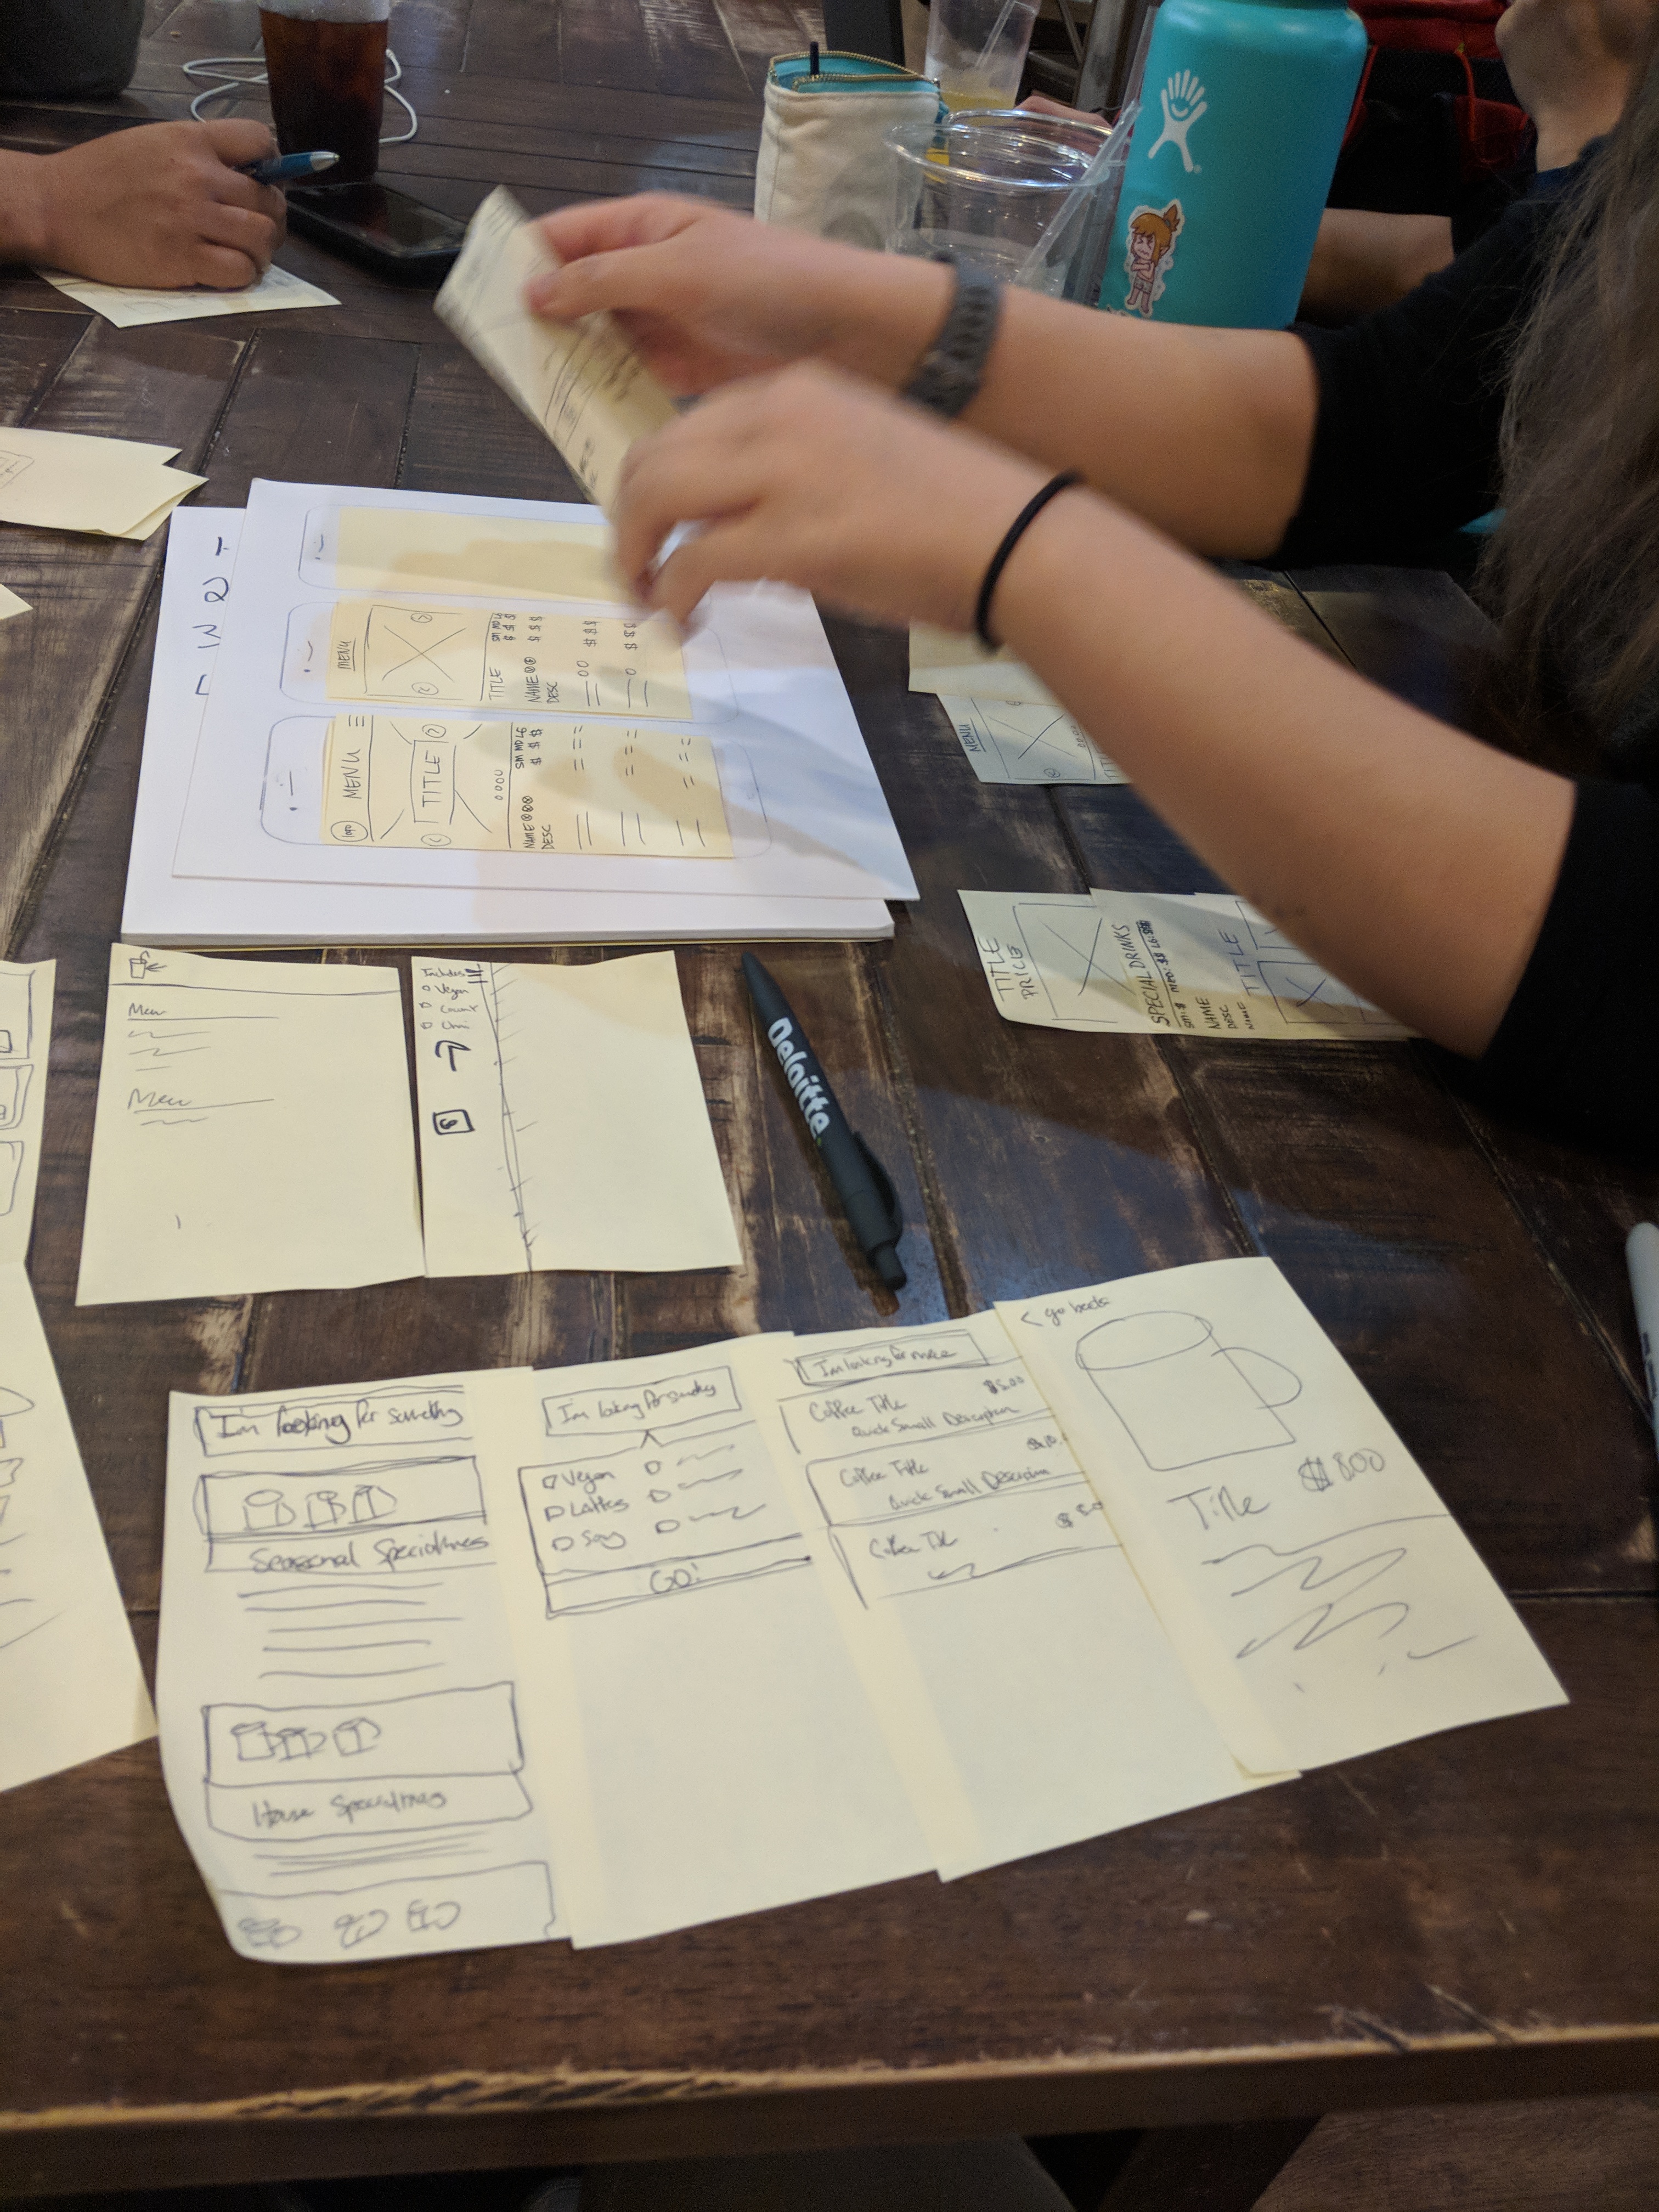 IN 2
MENU
TITLE
SM MD LG
$ $ $
NAME
$ $ $
DESC
$ $ $
MENU
TITLE
SM MD LG
$ $ $
NAME
DESC
MENU
TITLE
PRICE
SPECIAL DRINKS
SM: $ MED: $$ LG: $$$
NAME
DESC
NAME
TITLE
Menu
Menu
Includes
Vegan
Deloitte.
I'm looking for something
Seasonal Specialtiness
House Specialtiness
I'm looking for something
Vegan
Lattes
Soy
GO!
I'm looking for more
Coffee Title $5.00
Quick Small Description
Coffee Title
Quick Small Description
Coffee Title
< go back
Title